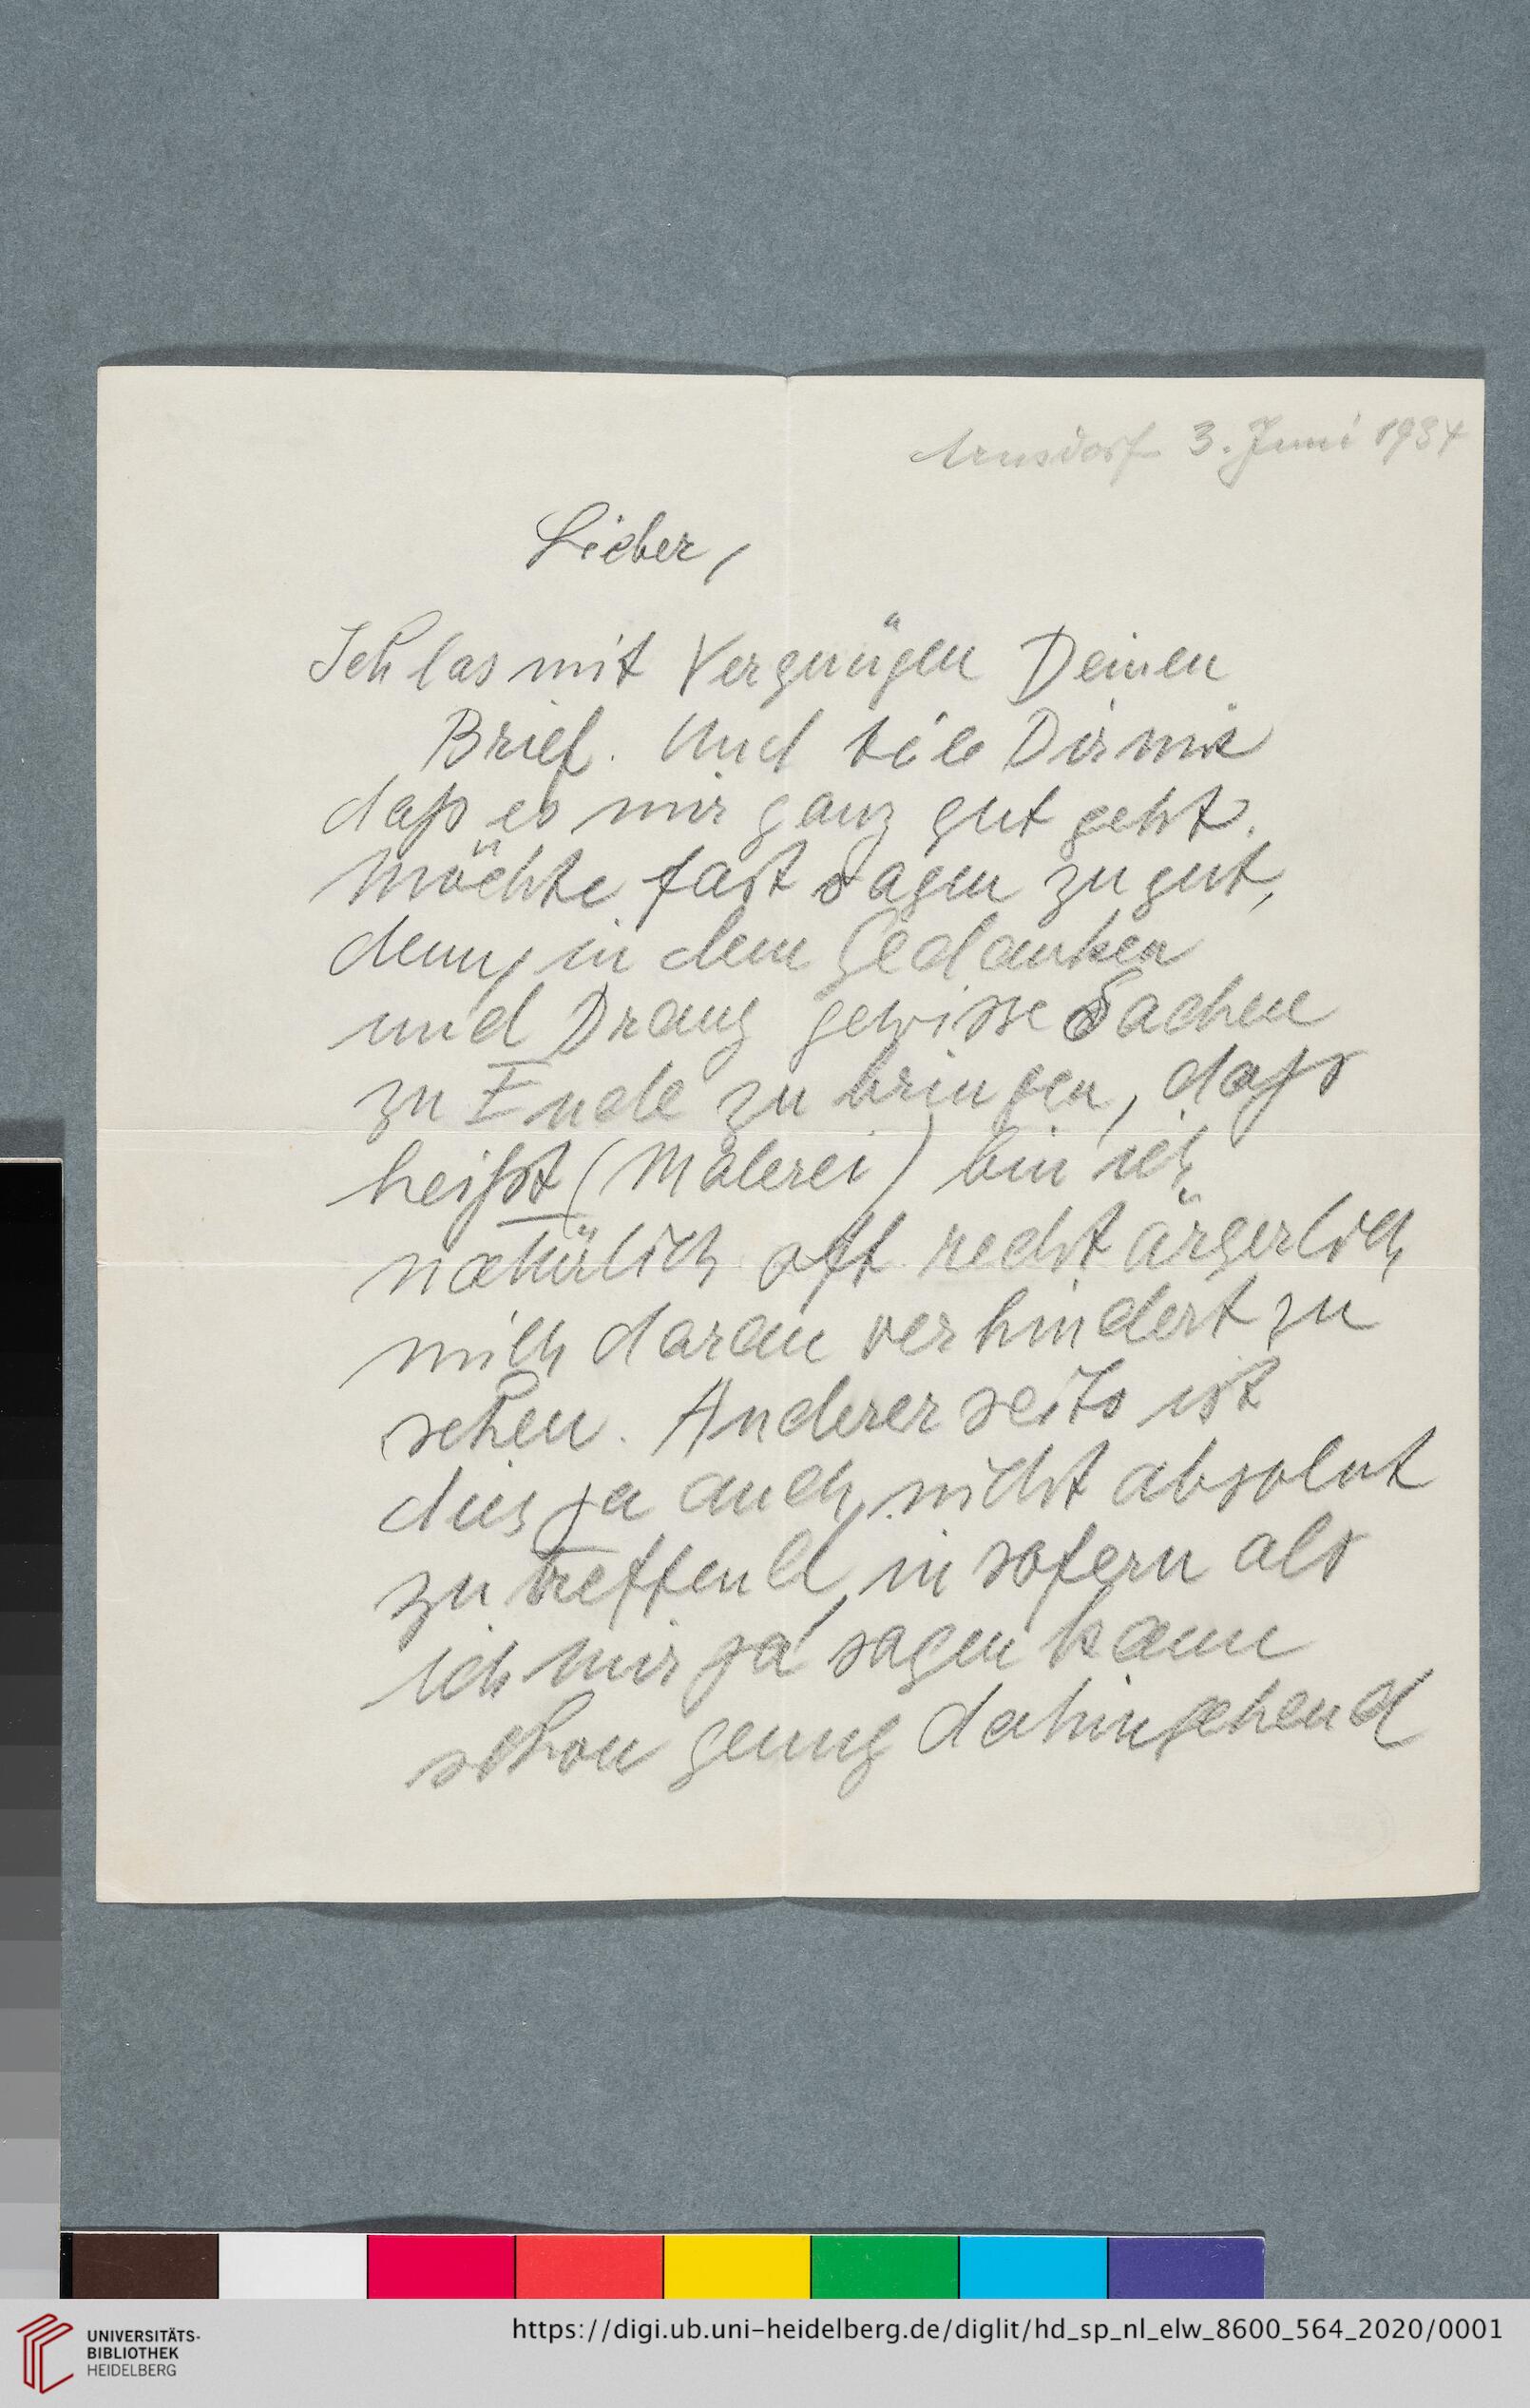 Arnsdorf 3. Juni 1934
Lieber,
Ich las mit Vergnügen Deinen
Brief. Und teile Dir mit
daß es mir ganz gut geht.
Möchte fast sagen zu gut,
denn, in dem Gedanken
und Drang gewisse Sachen
zu Ende zu bringen, dass
heißt (Malerei) bin ich
natürlich oft recht ärgerlich
mich daran verhindert zu
sehen. Andererseits ist
dies ja auch nicht absolut
zutreffend, insofern als
ich mir ja sagen kann
schon genug dahingehend
UNIVERSITÄTS-
BIBLIOTHEK
HEIDELBERG
https://digi.ub.uni-heidelberg.de/diglit/hd_sp_nl_elw_8600_564_2020/0001